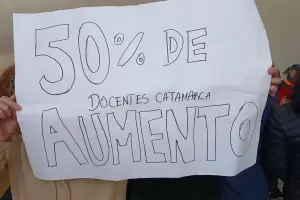 50% DE
DOCENTES CATAMARCA
AUMENTO